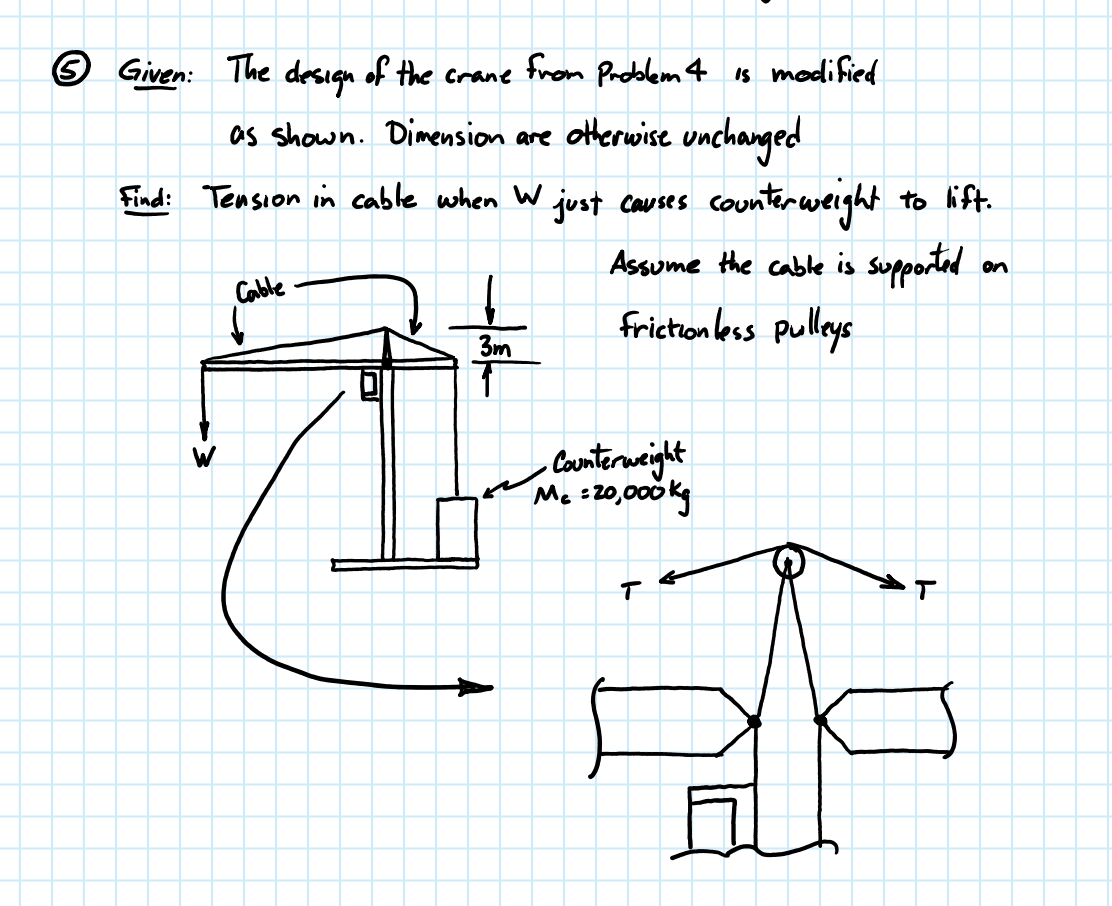 ⑤ Given: The design of the crane from Problem 4 is modified
as shown. Dimension are otherwise unchanged
Find: Tension in cable when W just causes counterweight to lift.
Assume the cable is supported on
frictionless pulleys
Cable
3m
W
Counterweight
Mc = 20,000 kg
T
T